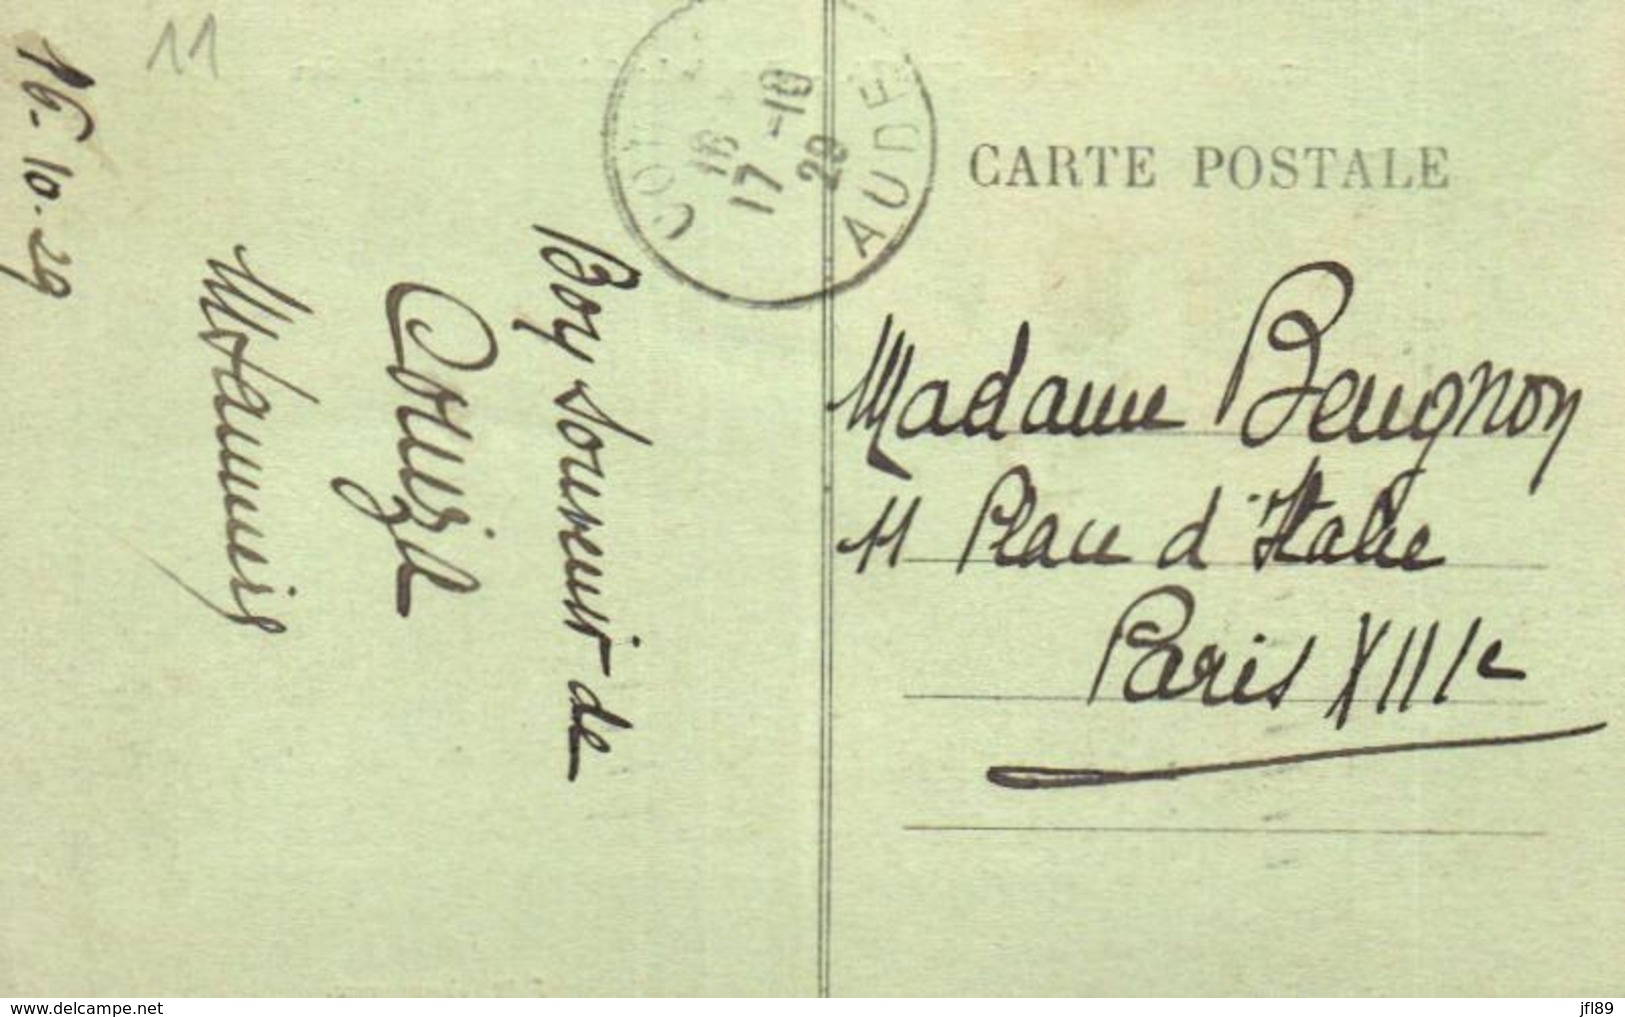 11
16-10-29
Bon souvenir de
Couiza
CARTE POSTALE
18
17 -10
29
AUDE
Madame Beugnon
11 Place d'Italie
Paris XIIIe
delcampe.net
jfl89